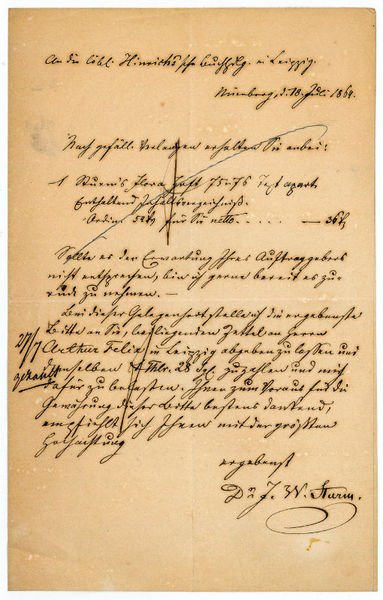 An die löbl. Hinrichs'sche Buchhdlg. in Leipzig.
Nürnberg, d. 18. Juli 1864.
Nach gefäll. Verlangen erhalten Sie anbei:
1 Sturm's Flora Heft 75 u. 76 Text apart.
Enthaltend Inhaltsverzeichniß.
Ordin. 52 für Sie netto . . . . . — 36
Sollte es der Erwartung Ihres Auftraggebers
nicht entsprechen, bin ich gerne bereit es zu-
rück zu nehmen. —
Bei dieser Gelegenheit stelle ich die ergebenste
Bitte an Sie, beiliegenden Zettel an Herrn
Arthur Felix in Leipzig abgeben zu lassen und
demselben Thlr. 28 zu zahlen und mich
dafür zu belasten. Ihnen zum Voraus für die
Gewährung dieser Bitte bestens dankend,
empfiehlt sich Ihnen mit der größten
Hochachtung
21/7
bezahlt
ergebenst
Dr. J. W. Sturm.